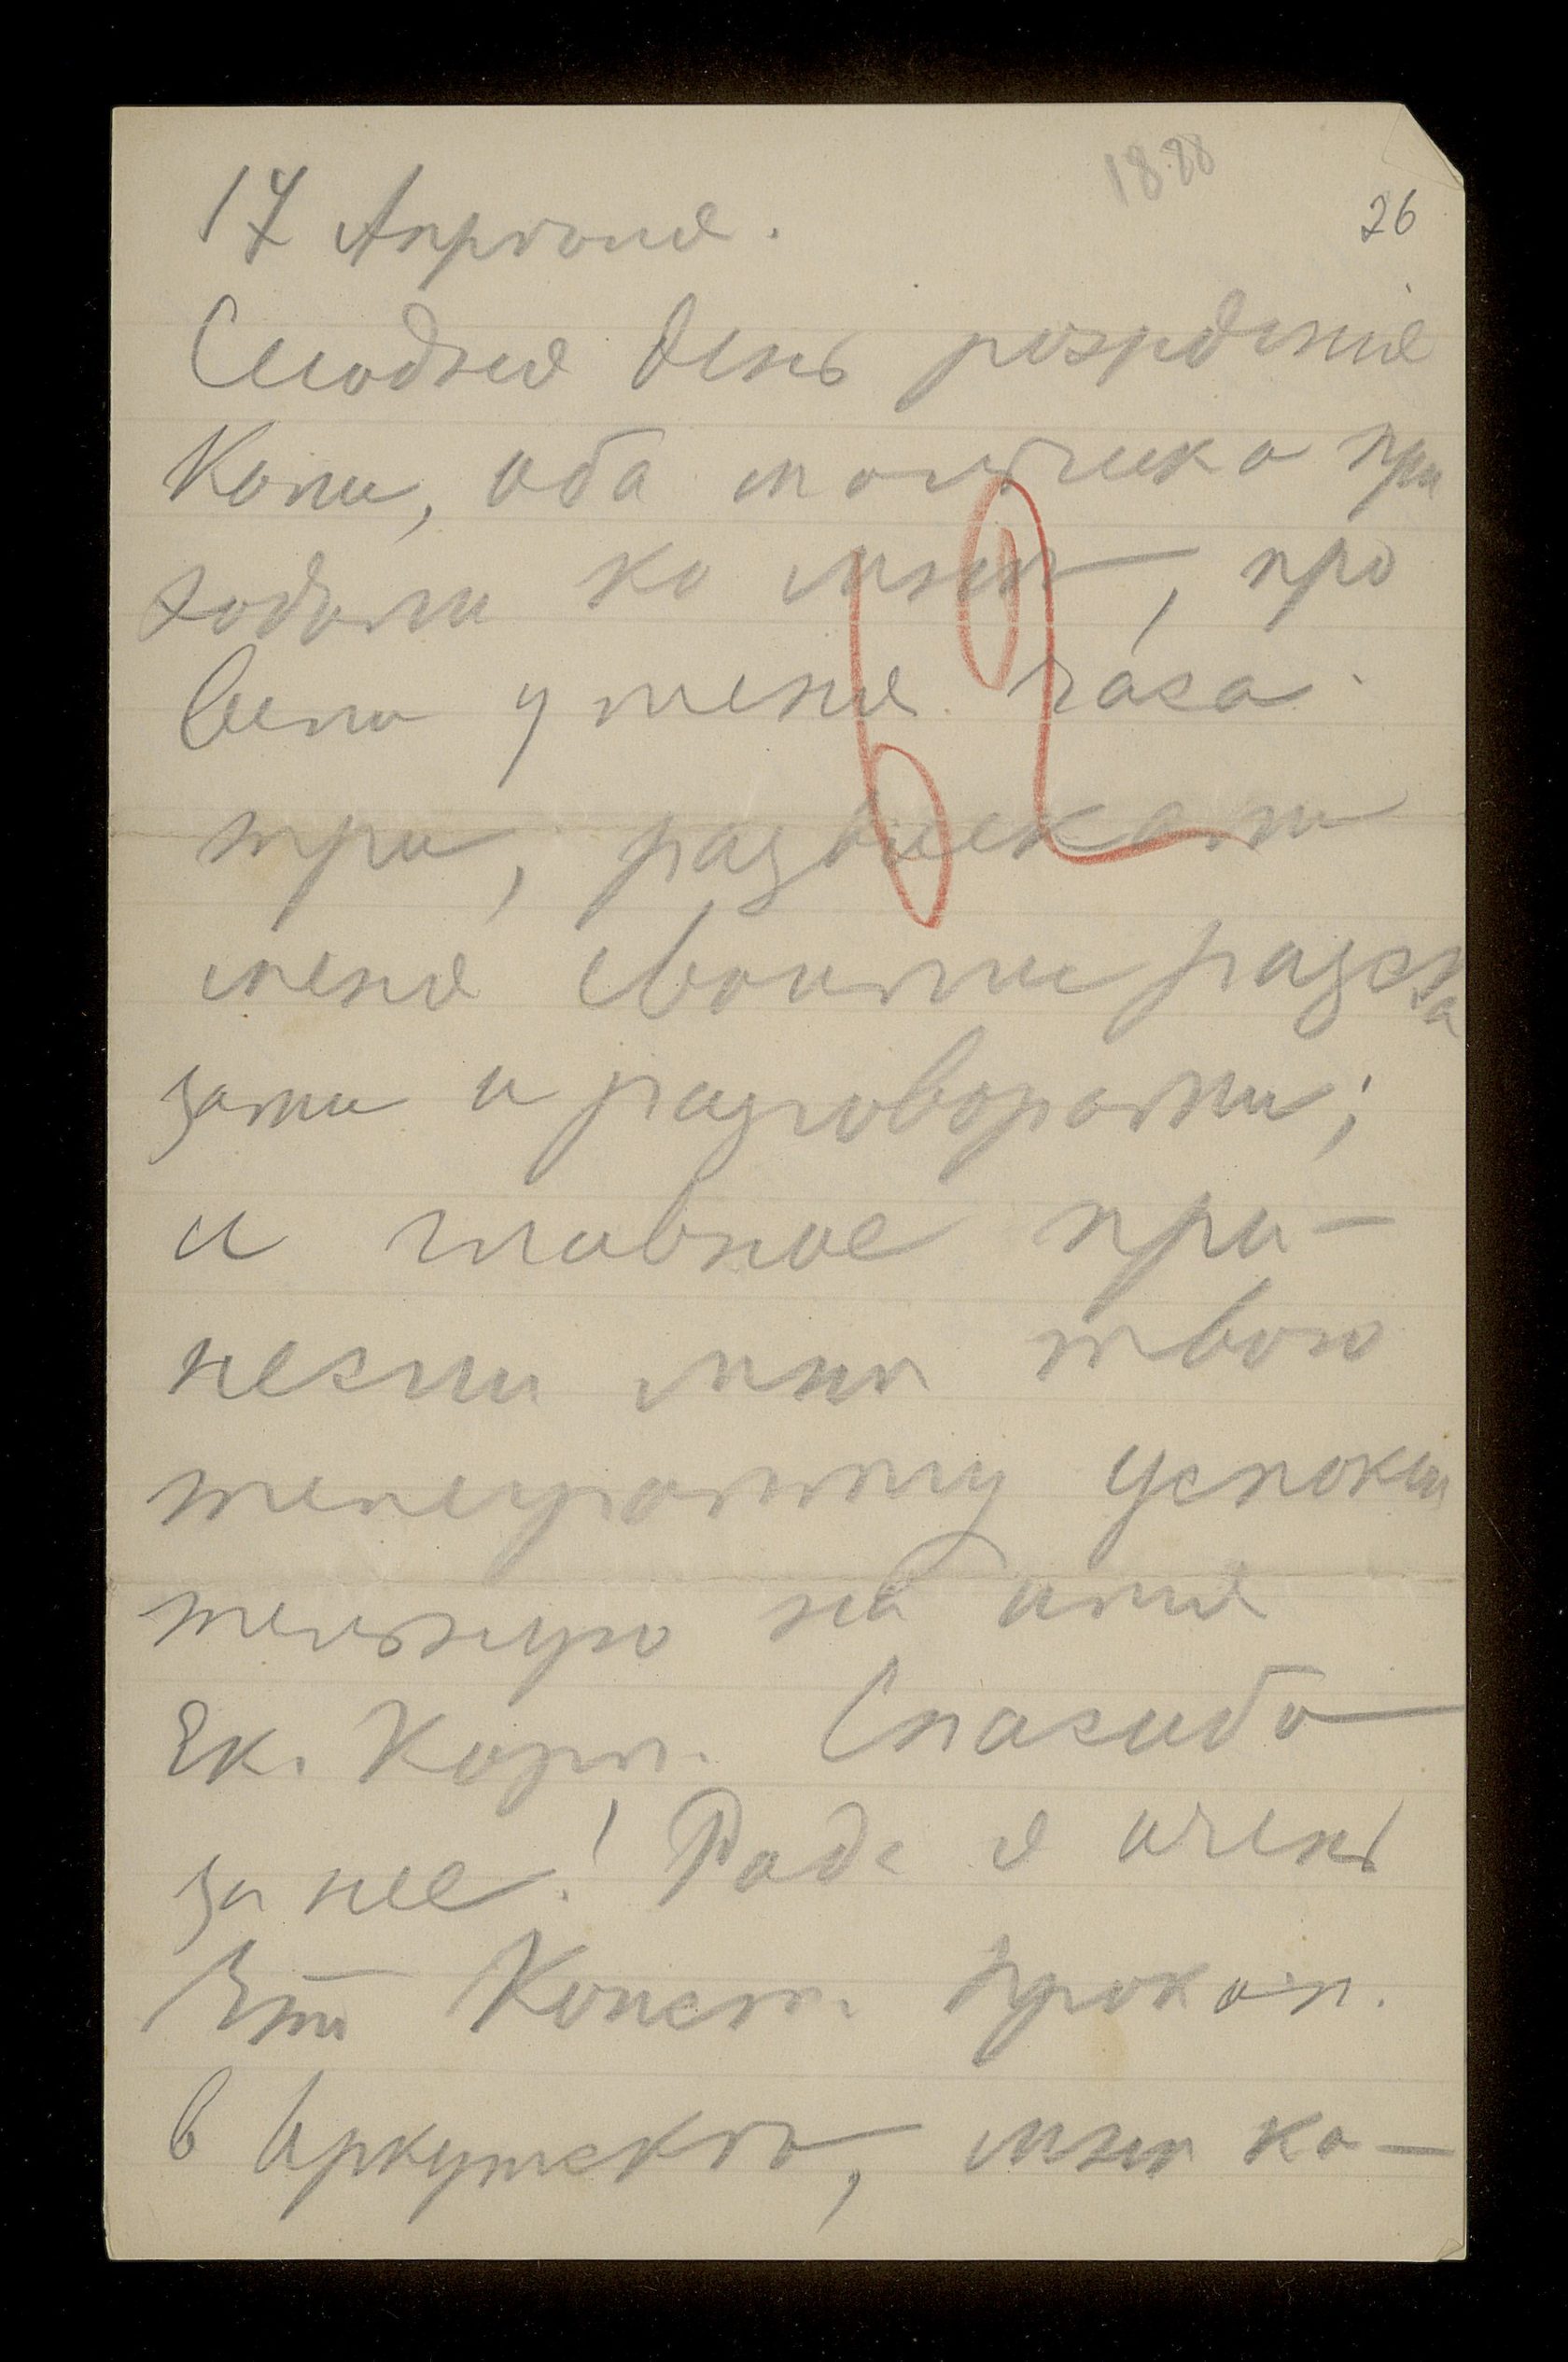 1888
26
17 Апрѣля.
Сегодня день рождения
Коли, оба мальчика при
ходили ко мнѣ, про
вели у меня часа
три, развлекали
меня своими разска
зами и разговорами;
и главное при-
несли мнѣ твою
телеграмму успокои
тельную на имя
Ек. Карл. Спасибо
за нее! Рада я очень
Конст.
в Иркутскѣ, мнѣ ка-